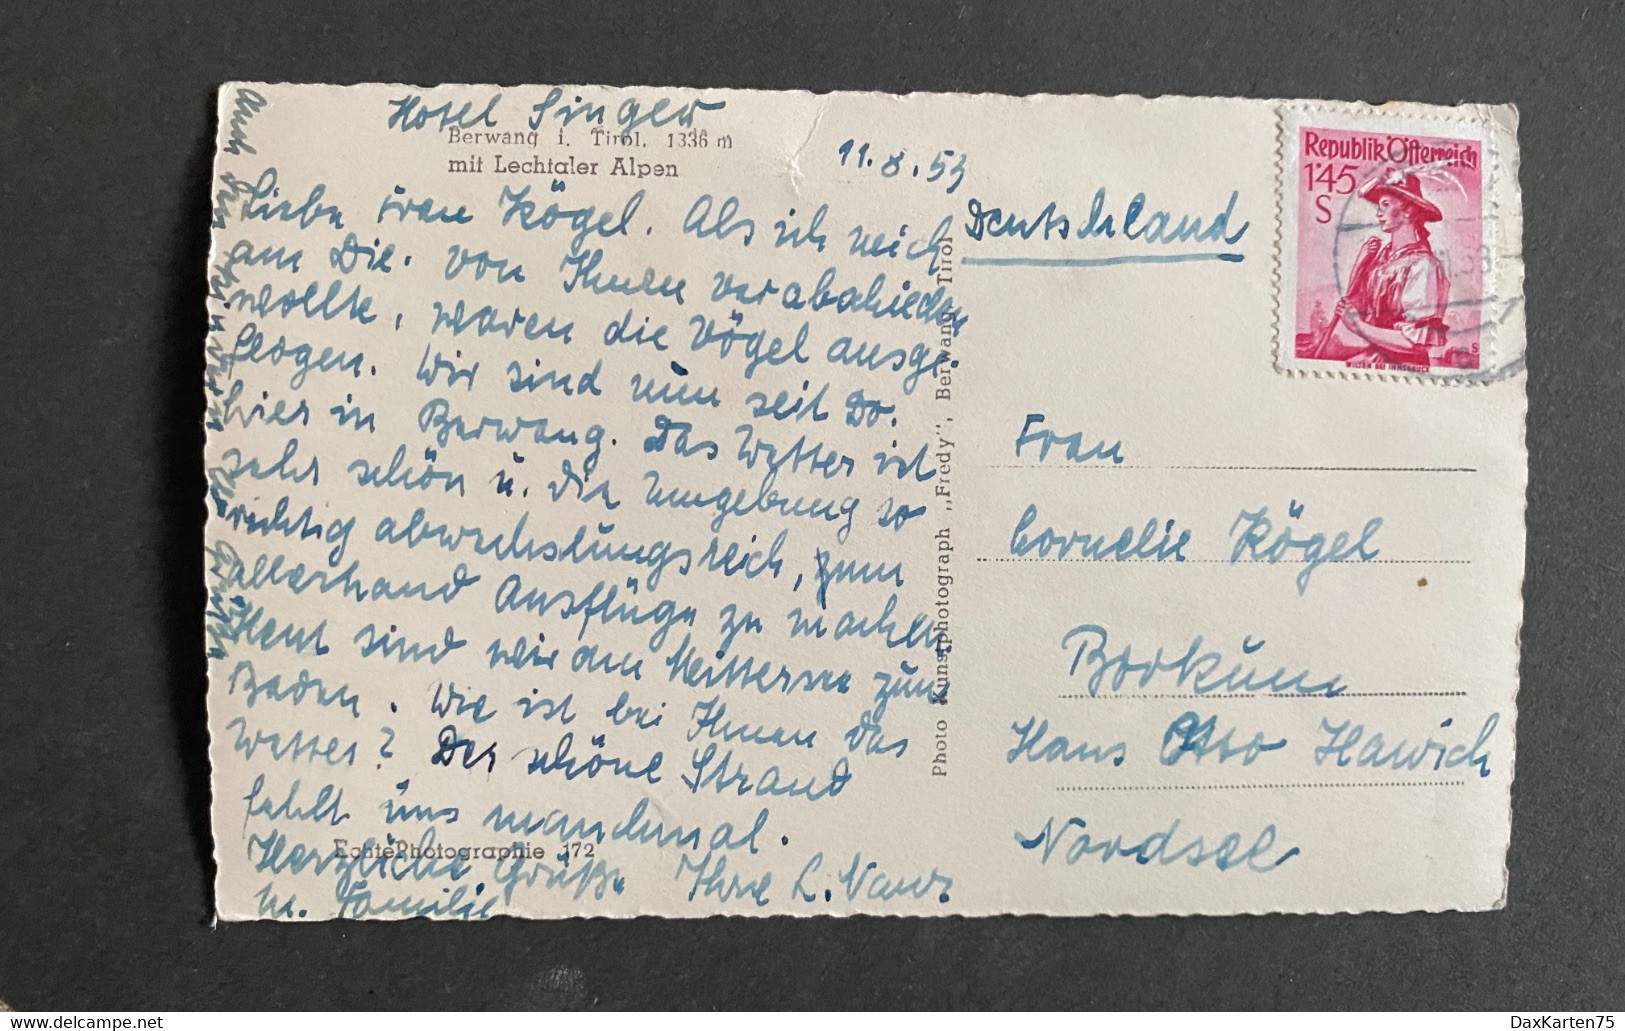 Hotel Singer
Berwang i. Tirol. 1336 m
mit Lechtaler Alpen
11.8.53
Liebe Frau Kögel. Als ich mich
am Die. von Ihnen verabschieden
wollte, waren die Vögel ausge-
flogen. Wir sind nun seit Do.
hier in Berwang. Das Wetter ist
sehr schön u. die Umgebung so
richtig abwechslungsreich, zum
allerhand Ausflüge zu machen.
Heut sind wir am Mittersee zum
Baden. Wie ist bei Ihnen das
Wetter? Der schöne Strand
fehlt uns manchmal.
Herzliche Grüße Ihre L.
m. Familie
Auch den
EchtePhotographie 172
Photo Kunstphotograph „Fredy", Berwang, Tirol
Deutschland
Republik Österreich
1'45
S
WILTEN BEI INNSBRUCK
Frau
Cornelie Kögel
Borkum
Hans Otto Hawich
Nordsee
DaxKarten75